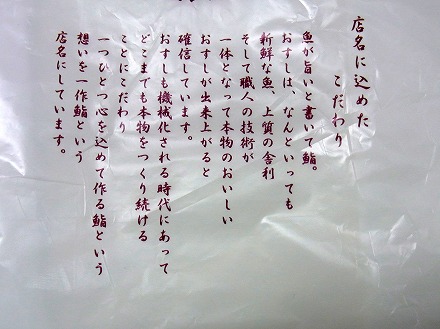 店名に込めた
こだわり
魚が旨いと書いて鮨。
おすしは、なんといっても
新鮮な魚、上質の舎利
そして職人の技術が
一体となって本物のおいしい
おすしが出来上がると
確信しています。
おすしも機械化される時代にあって
どこまでも本物をつくり続ける
ことにこだわり
一つひとつ心を込めて作る鮨という
想いを一作鮨という
店名にしています。